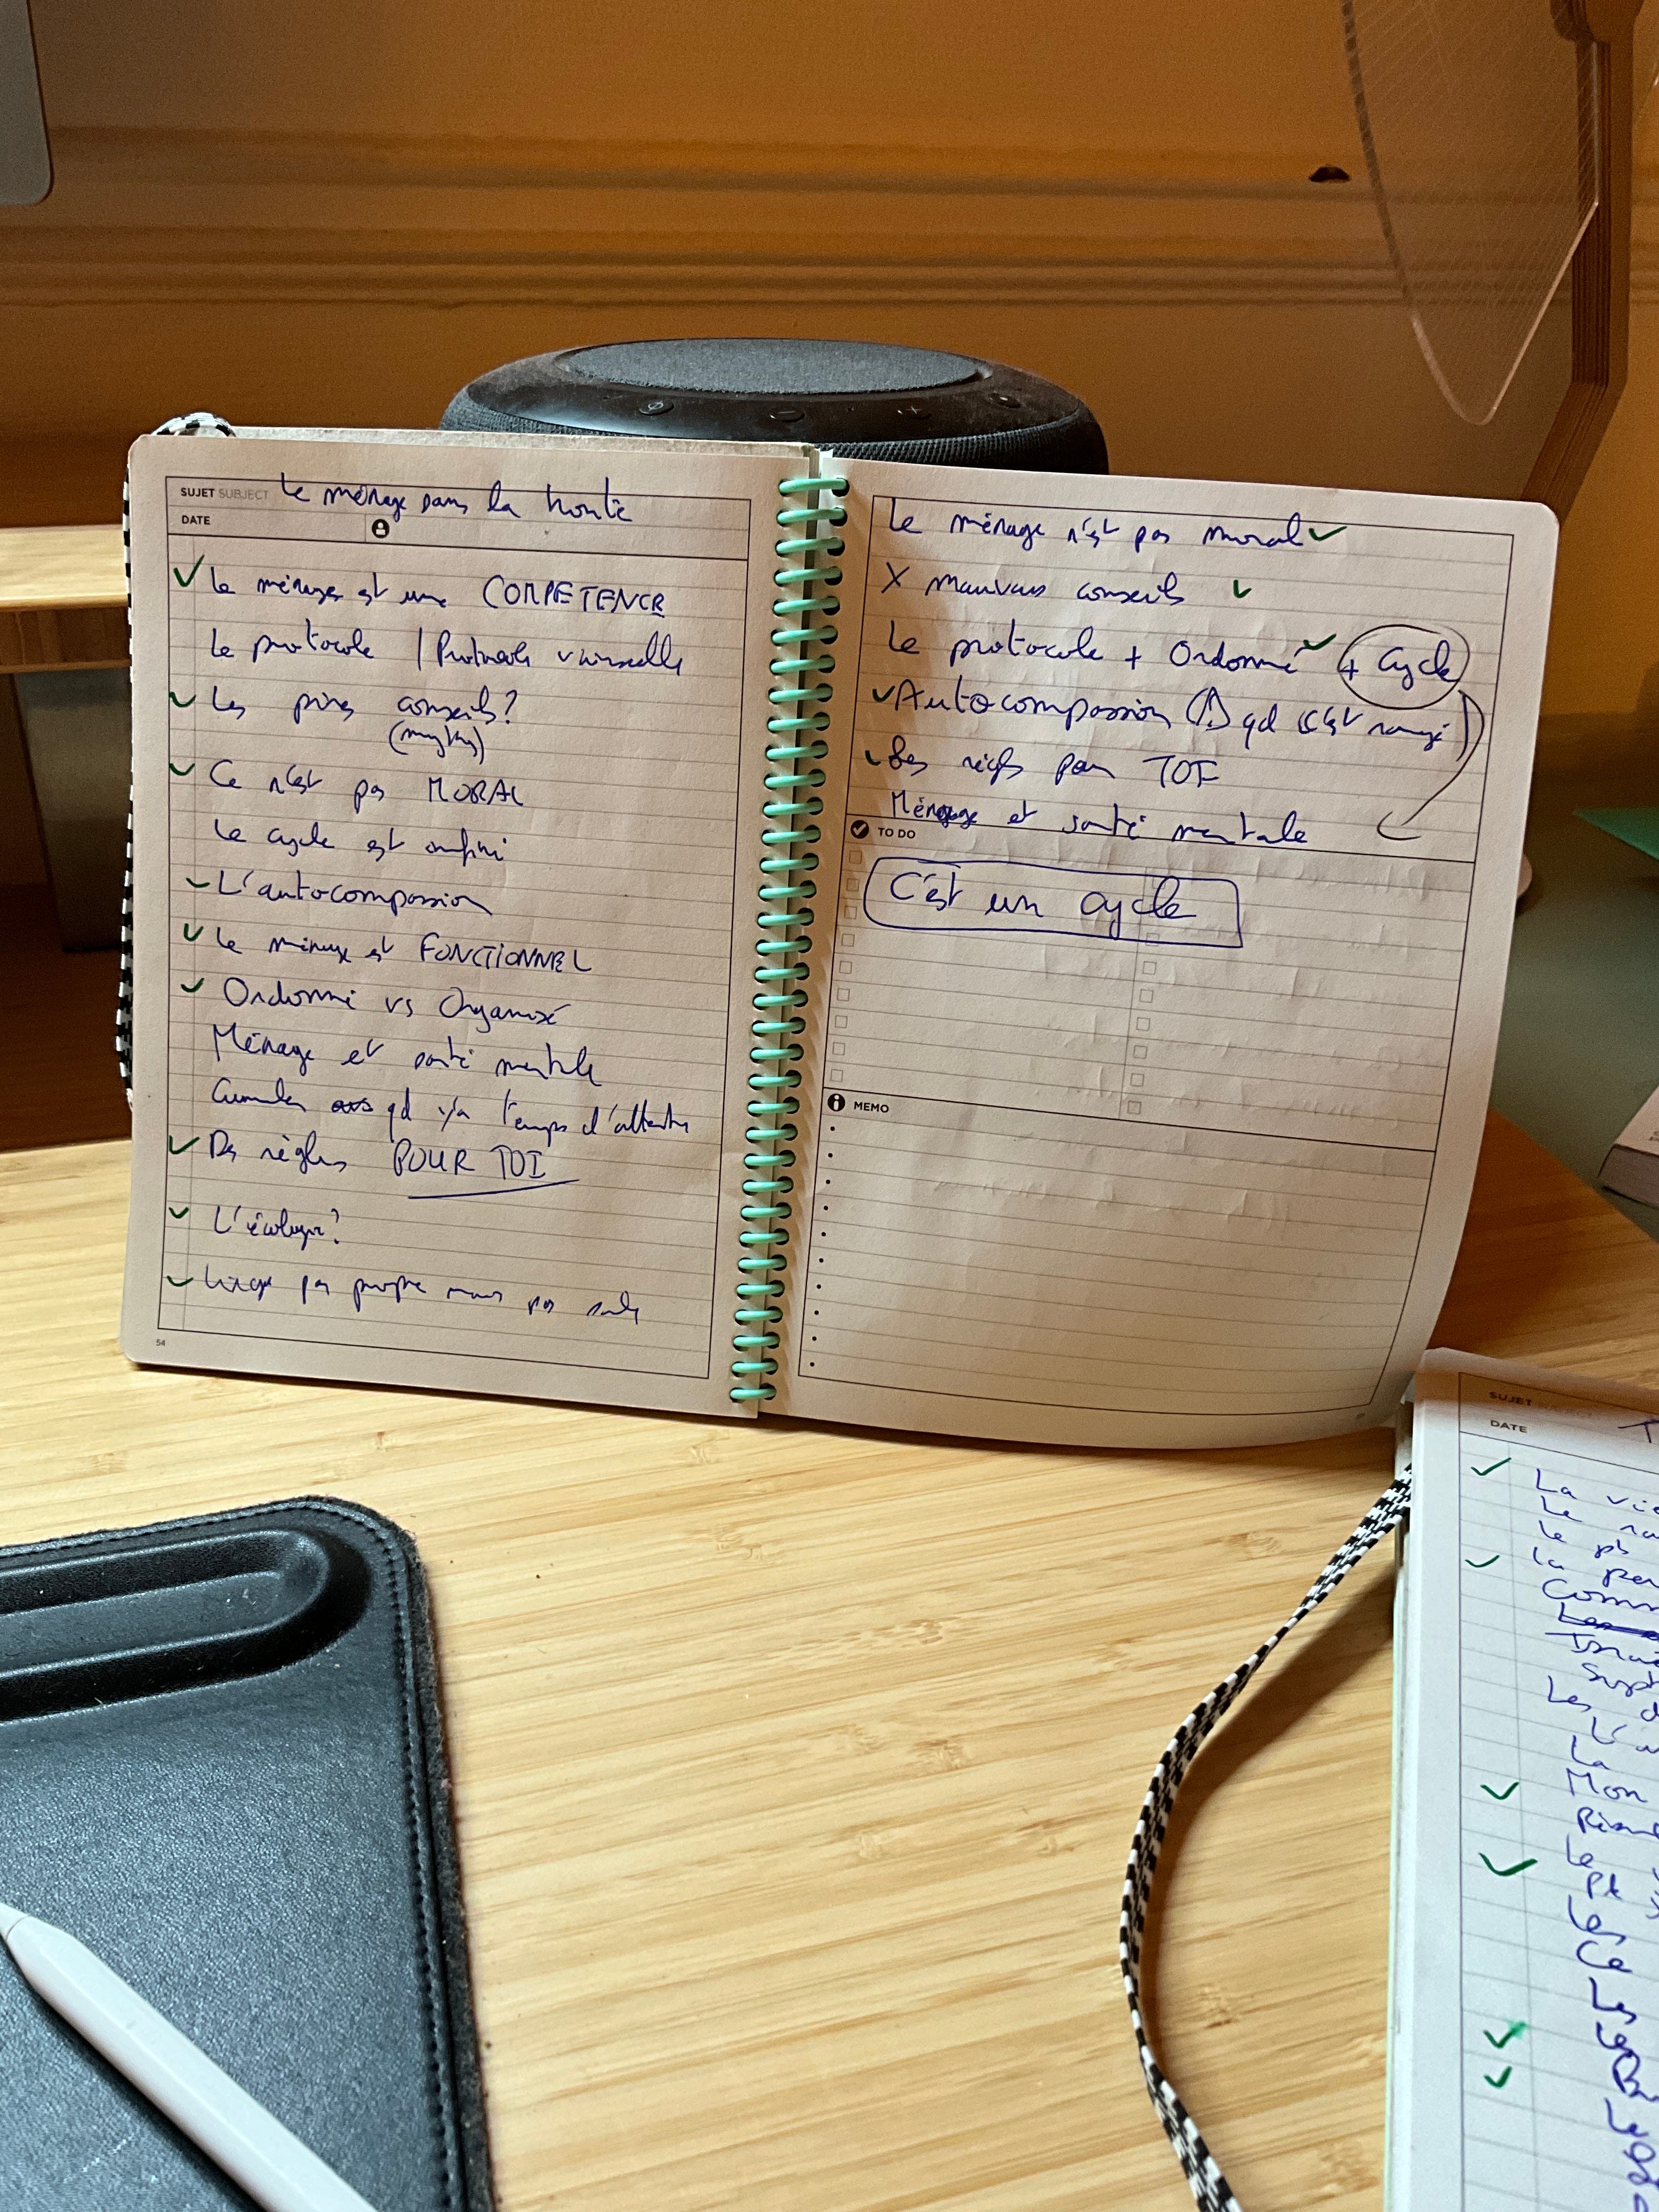 SUJET SUBJECT Le ménage sans la honte
DATE
Le ménage est une COMPETENCE
Le protocole / Protocole vaisselle
Les pires conseils?
(mythes)
Ce n'est pas MORAL
Le cycle est infini
L'autocompassion
Le ménage est FONCTIONNEL
Ordonné vs Organisé
Ménage et santé mentale
Cumuler qd y'a temps d'attente
Des règles POUR TOI
L'écologie?
Linge pas propre mais pas sale
54
Le ménage n'est pas moral
X mauvais conseils
Le protocole + Ordonné + Cycle
Autocompassion (⚠ qd c'est rangé)
Des règles pour TOI
Ménage et santé mentale
TO DO
C'est un cycle
MEMO
SUJET
DATE
La vie
Le
Le pb
La
Les
La
Mon
Le
Les
Ce
Les